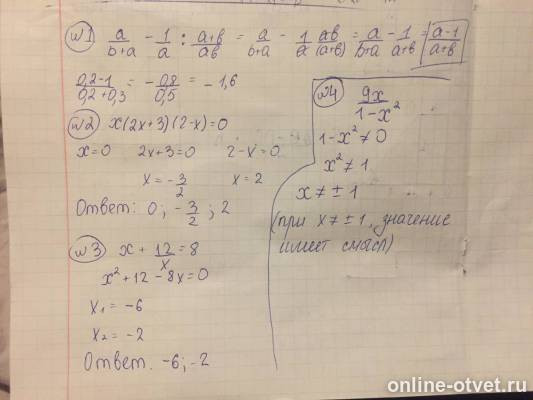 №1 a/(b+a) - 1/a : (a+b)/(ab) = a/(b+a) - 1/a · ab/(a+b) = a/(b+a) - 1/(a+b) = (a-1)/(a+b)
(0,2-1)/(0,2+0,3) = -0,8/0,5 = -1,6
№2 x(2x+3)(2-x)=0
x=0 2x+3=0 2-x=0
x=-3/2 x=2
Ответ: 0; -3/2; 2
№3 x + 12/x = 8
x²+12-8x=0
x₁ = -6
x₂ = -2
Ответ. -6; -2
№4 9x/(1-x²)
1-x² ≠ 0
x² ≠ 1
x ≠ ± 1
(при x ≠ ±1, значение
имеет смысл)
online-otvet.ru